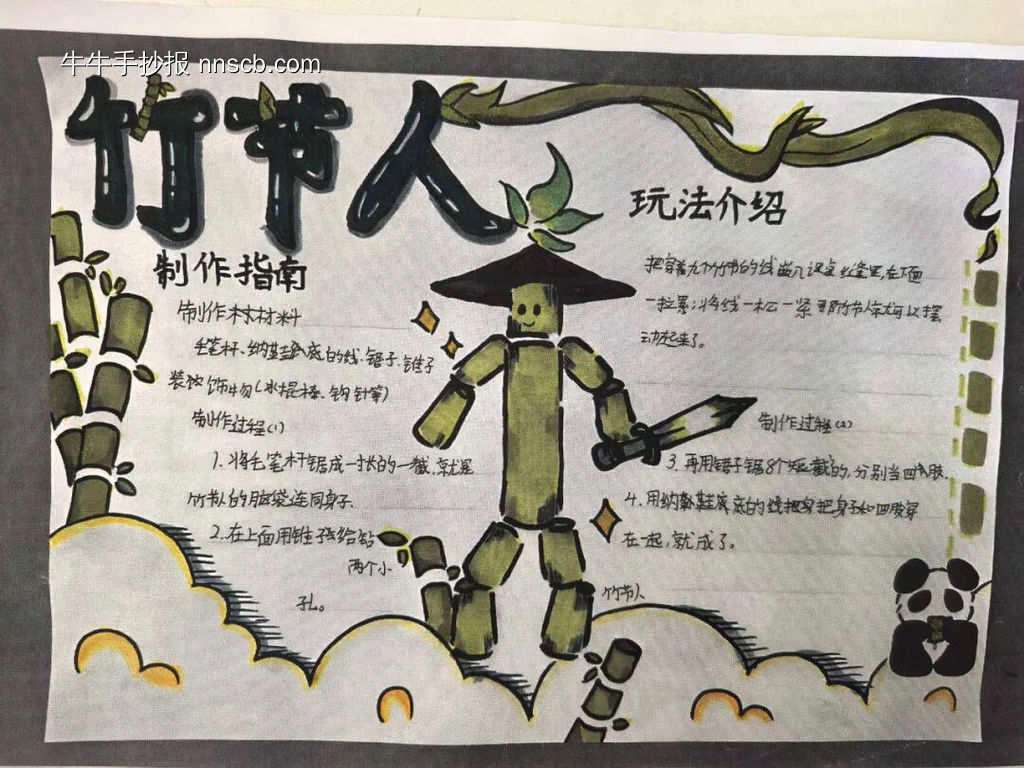 牛牛手抄报 nnscb.com
竹节人
制作指南
制作材料
毛笔杆、纳鞋底的线、锯子、锥子
装饰物(冰棍棒、钩针等)
制作过程(1)
1.将毛笔杆锯成一长的一截,就是
竹节人的脑袋连同身子.
2.在上面用锥子给钻
两个小
孔。
玩法介绍
把穿着九个竹节的线嵌入课桌缝里,在下面
一拉紧;将线一松一紧那竹节人就可以摆
动起来了。
制作过程(2)
3.再用锯子锯8个短截的,分别当四肢.
4.用纳鞋底的线把身子和四肢穿
在一起,就成了。
竹节人